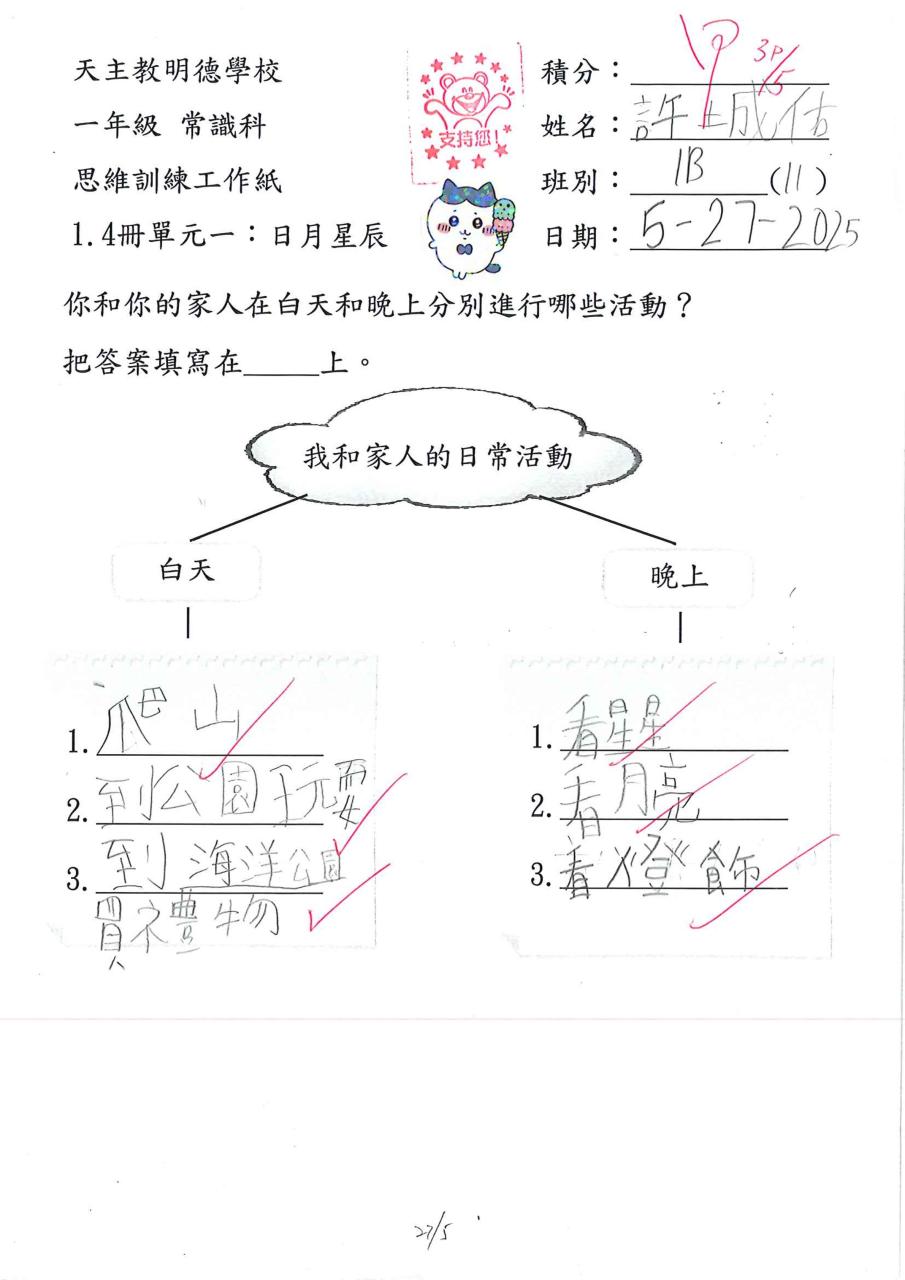 天主教明德學校
一年級 常識科
思維訓練工作紙
1.4冊單元一：日月星辰
支持您!
積分：甲 3P/5
姓名：許城佑
班別：1B (11)
日期：5-27-2025
你和你的家人在白天和晚上分別進行哪些活動？
把答案填寫在_____上。
我和家人的日常活動
白天
1. 爬山
2. 到公園玩耍
3. 到海洋公園
買禮物
晚上
1. 看星星
2. 看月亮
3. 看燈飾
27/5